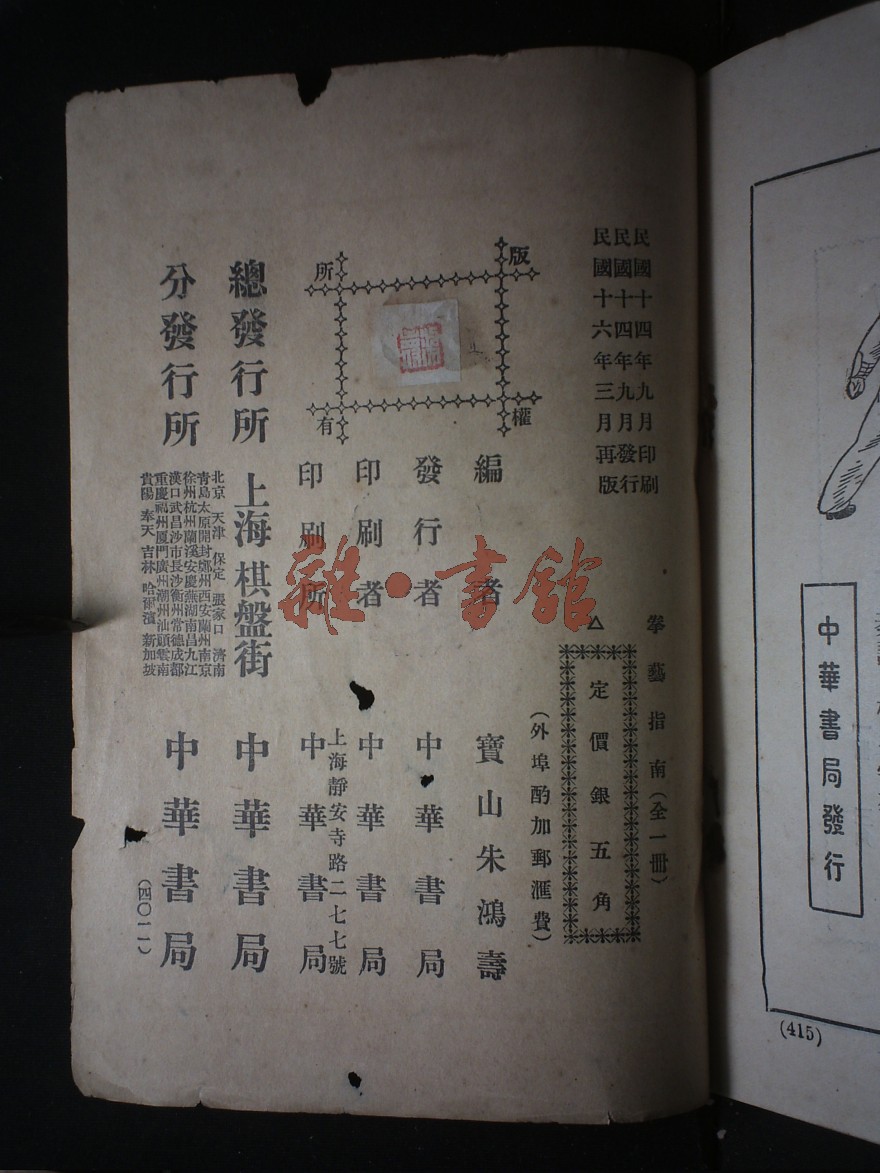 民國十四年九月印刷
民國十四年九月發行
民國十六年三月再版
拳藝指南（全一冊）
△定價銀五角
（外埠酌加郵滙費）
版權所有
編者 寶山朱鴻壽
發行者 中華書局
印刷者 中華書局
上海靜安寺路二七七號
印刷所 中華書局
總發行所 上海棋盤街 中華書局
分發行所
北京 天津 保定 張家口 濟南
青島太原開封鄭州西安蘭州南京
徐州杭州蘭溪安慶蕪湖南昌九江
漢口武昌沙市長沙衡州常德成都
重慶福州厦門廣州潮州汕頭雲南
貴陽 奉天 吉林 哈爾濱 新加坡
中華書局
（四〇一一）
雜·書館
中華書局發行
(415)